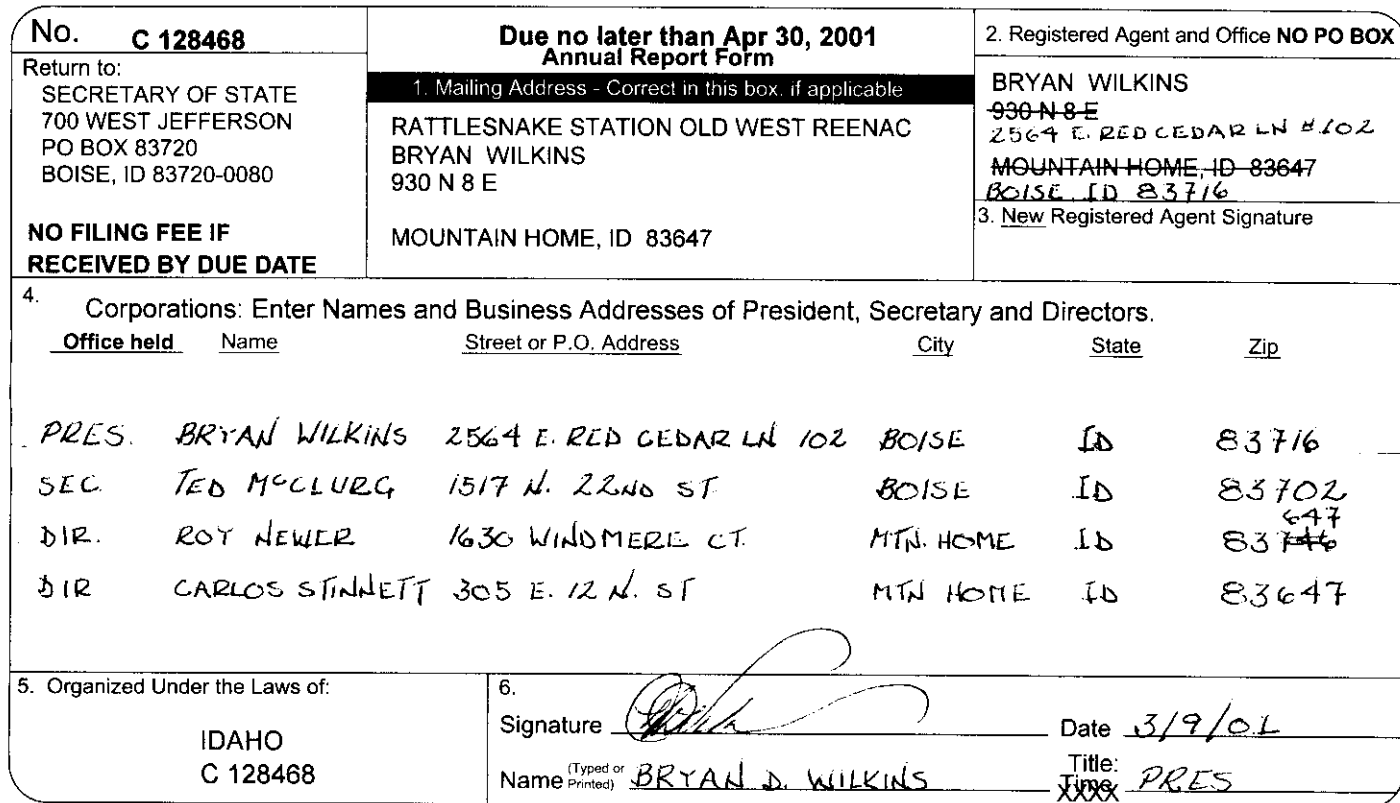 No. C 128468
Return to:
SECRETARY OF STATE
700 WEST JEFFERSON
PO BOX 83720
BOISE, ID 83720-0080
NO FILING FEE IF
RECEIVED BY DUE DATE
Due no later than Apr 30, 2001
Annual Report Form
1. Mailing Address - Correct in this box, if applicable
RATTLESNAKE STATION OLD WEST REENAC
BRYAN WILKINS
930 N 8 E
MOUNTAIN HOME, ID 83647
2. Registered Agent and Office NO PO BOX
BRYAN WILKINS
930 N 8 E
2564 E. RED CEDAR LN #102
MOUNTAIN HOME, ID 83647
BOISE, ID 83716
3. New Registered Agent Signature
4. Corporations: Enter Names and Business Addresses of President, Secretary and Directors.
Office held Name Street or P.O. Address City State Zip
PRES. BRYAN WILKINS 2564 E. RED CEDAR LN 102 BOISE ID 83716
SEC. TED McCLURG 1517 N. 22ND ST BOISE ID 83702
647
DIR. ROY NEWER 1630 WINDMERE CT. MTN. HOME ID 83746
DIR CARLOS STINNETT 305 E. 12 N. ST MTN HOME ID 83647
5. Organized Under the Laws of:
IDAHO
C 128468
6.
Signature Date 3/9/01
Name (Typed or Printed) BRYAN D. WILKINS Title: PRES
Time